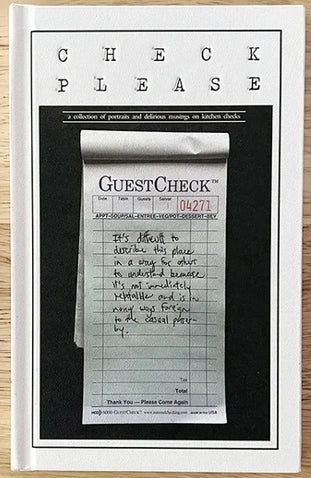 CHECK
PLEASE
a collection of portraits and delirious musings on kitchen checks
GUESTCHECK™
Date Table Guests Server
04271
APPT-SOUP/SAL-ENTREE-VEG/POT-DESSERT-BEV
It's difficult to
describe this place
in a way for others
to understand because
it's not immediately
relatable and is in
many ways foreign
to the casual passer-
by.
Tax
Total
Thank You — Please Come Again
GUESTCHECK™ www.nationalchecking.com USA